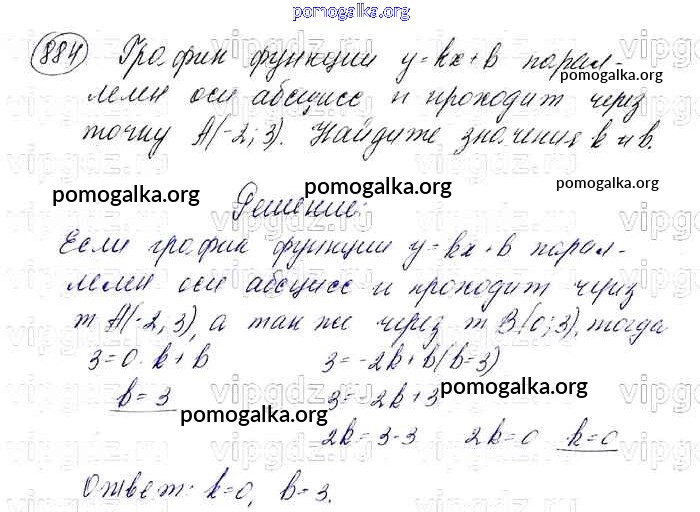 pomogalka.org
884 График функции y=kx+b парал-
pomogalka.org
лелен оси абсцисс и проходит через
точку A(-2; 3). Найдите значения k и b.
pomogalka.org pomogalka.org pomogalka.org
Решение:
Если график функции y=kx+b парал-
лелен оси абсцисс и проходит через
т A(-2, 3), а так же через т B(0; 3), тогда
3=0·k+b 3=-2k+b(b=3)
b=3 3=-2k+3
pomogalka.org pomogalka.org
2k=3-3 2k=0 k=0
Ответ: k=0, b=3.